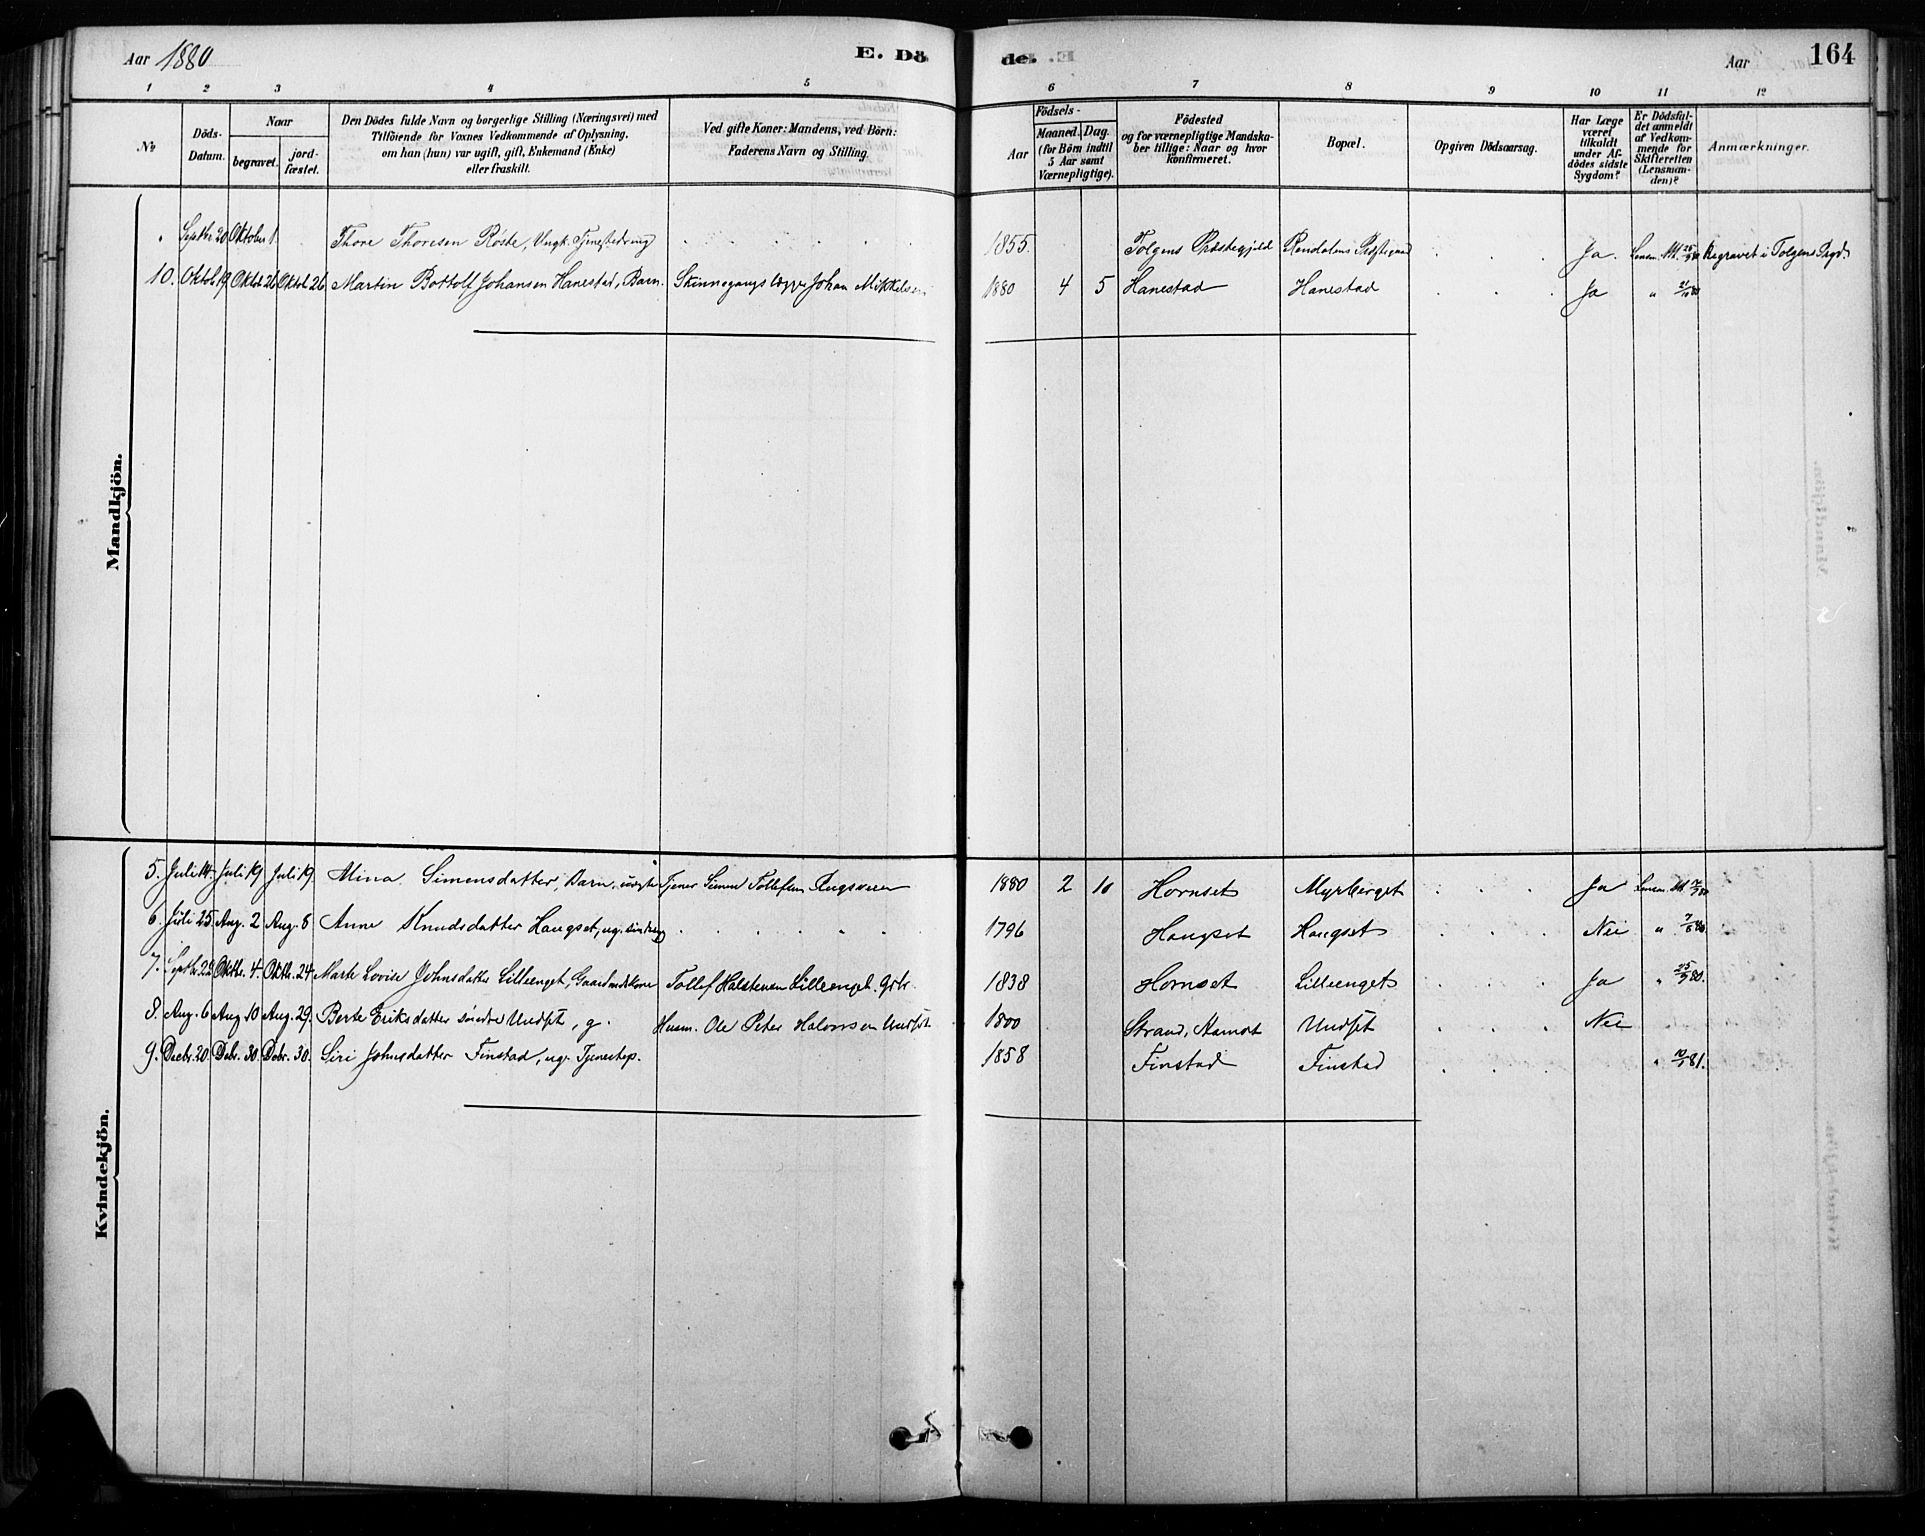 Aar 1880
E. Dö
de.
Aar
164
1 2 3 4 5 6 7 8 9 10 11 12
No
Döds-
Datum.
Naar
begravet.
jord-
fæstet.
Den Dödes fulde Navn og borgerlige Stilling (Næringsvei) med
Tilföiende for Voxnes Vedkommende af Oplysning,
om han (hun) var ugift, gift, Enkemand (Enke)
eller fraskilt.
Ved gifte Koner: Mandens, ved Börn:
Faderens Navn og Stilling.
Födsels-
Aar
Maaned. Dag.
(for Börn indtil
5 Aar samt
Værnepligtige).
Födested
og for værnepligtige Mandska-
ber tillige: Naar og hvor
Konfirmeret.
Bopæl.
Opgiven Dödsaarsag.
Har Læge
været
tilkaldt
under Af-
dödes sidste
Sygdom?
Er Dödsfal-
det anmeldt
af Vedkom-
mende for
Skifteretten
(Lensman-
den)?
Anmærkninger.
Mandkjön.
Septbr 20 Oktober 1. Thore Thoresen Röste, Ungk. Tjenestedreng 1855. Tolgens Præstegjeld Rendalens Ja. Lensm. Att. Begravet i Tolgens
10. Oktob. 19 Oktob. 26 Oktob. 26 Martin Bottolf Johansen Hanestad, Barn. Johan Mikkelsen 1880 4 5 Hanestad Hanestad Ja " 21/10 80
Kvindekjön.
5. Juli 14. Juli 19 Juli 19. Mina Simensdatter, Barn, Tjener Simen Tollefsen 1880 2 10 Hornset Myrberget Ja Lensm. Att.
6. Juli 25 Aug. 2 Aug. 8 Anne Knudsdatter Haugset, ug. 1796 Haugset Haugset Nei "
7. Septbr. 22 Oktbr. 4 Oktbr. 24 Marte Lovise Johnsdatter Lilleenget, Gaardmdskone Tollef Halstensen Lilleenget. Gdbr. 1838 Hornset Lilleenget Ja "
8. Aug. 6 Aug 10 Aug. 29. Berte Eriksdatter söndre Undset, g. Husm. Ole Peter Halvorsen Undset 1800 Strand, Aamot Undset Nei
9. Decbr. 20. Debr. 30. Debr. 30. Siri Johnsdatter Finstad, ug. Tjenestep. 1858 Finstad Finstad " 10/1 81.